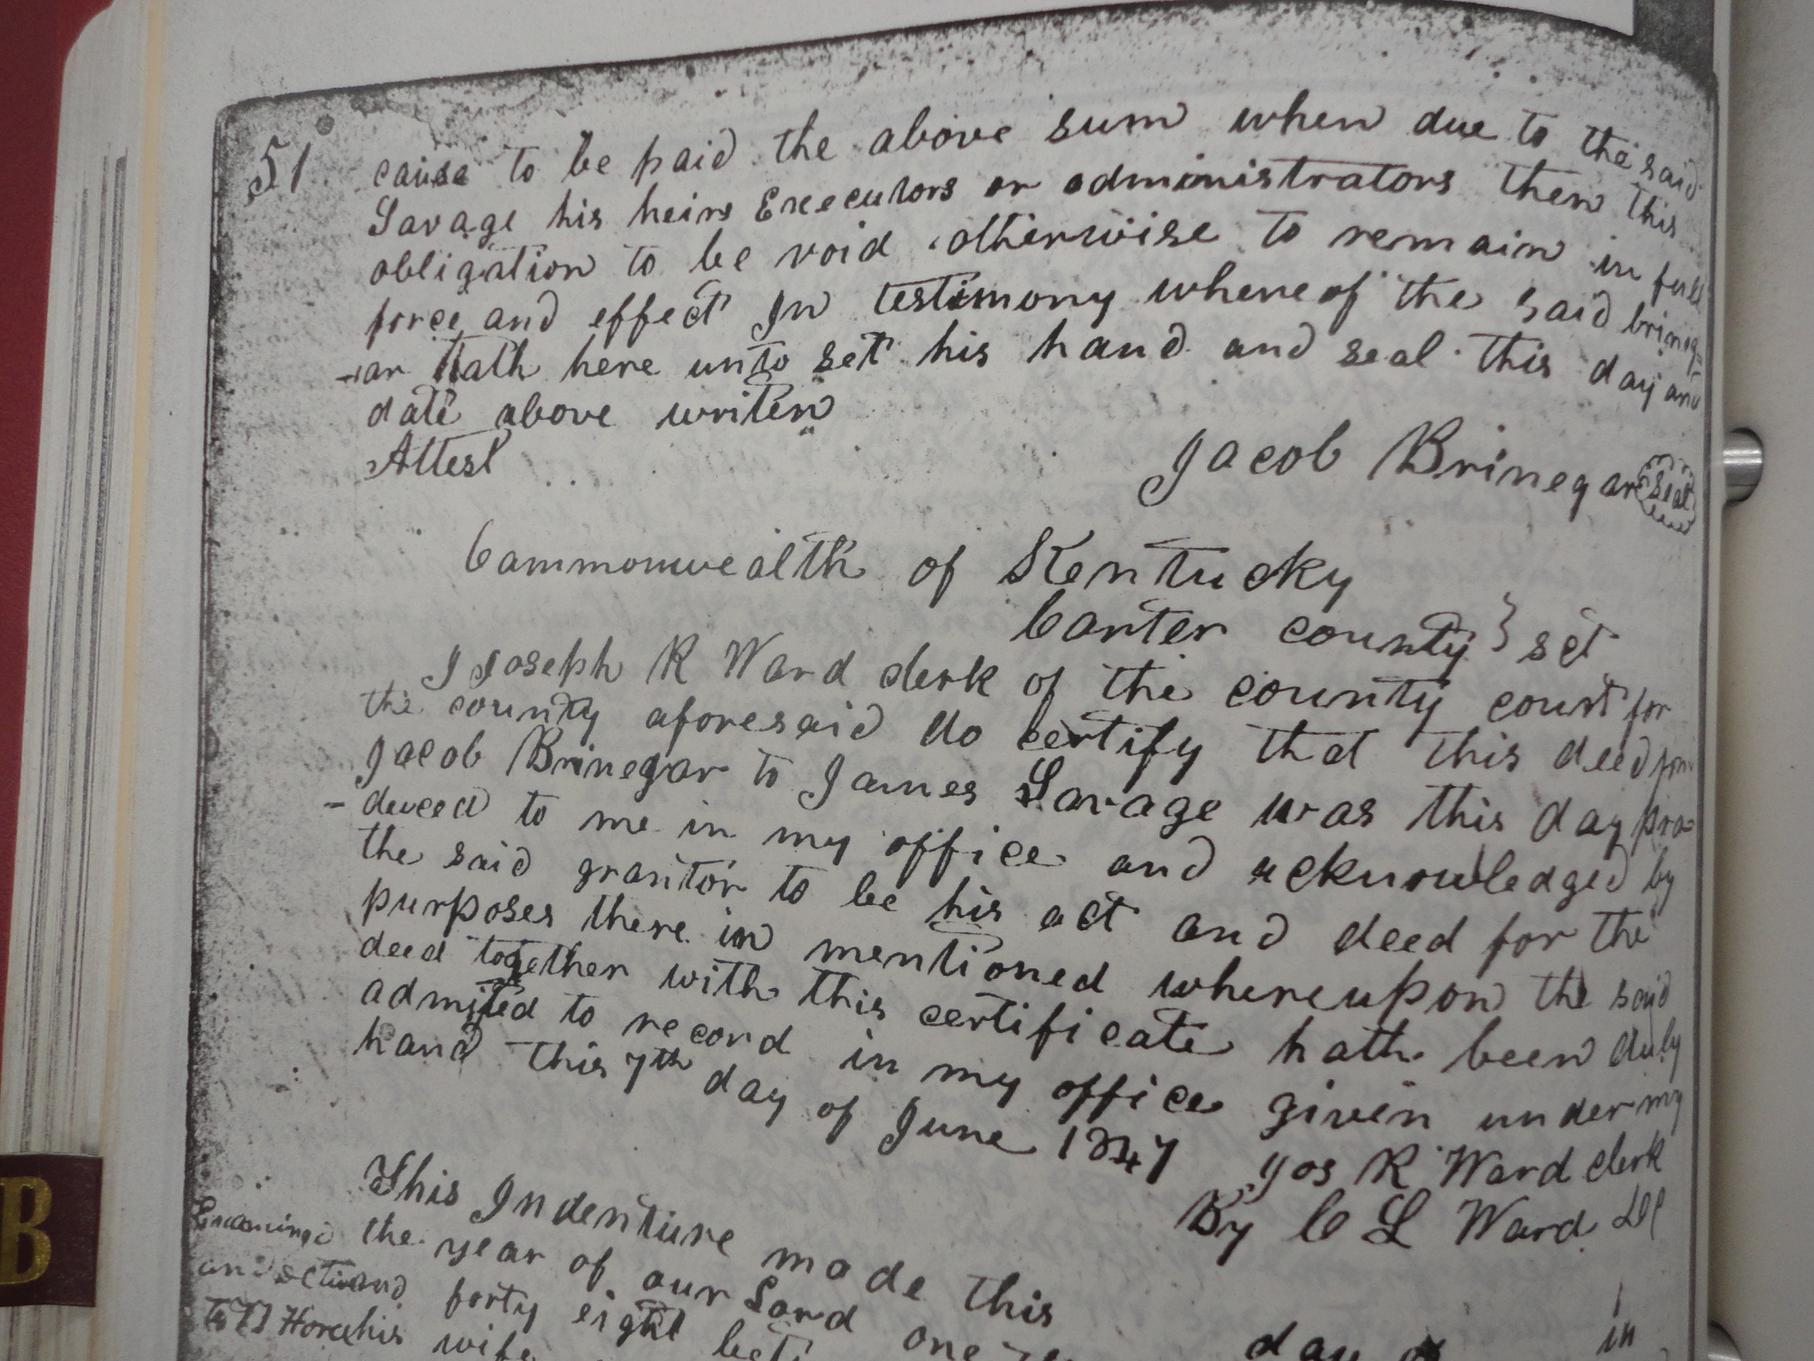 51
cause to be paid the above sum when due to the said
Savage his heirs Executors or administrators then this
obligation to be void otherwise to remain in full
force and effect In testimony whereof the said bring=
-ar hath here unto set his hand and seal this day and
date above writen
Attest
Jacob Brinegar Seal
Commonwealth of Kentucky
Carter county } sct
I Joseph R Ward clerk of the county court for
the county aforesaid do certify that this deed from
Jacob Brinegar to James Savage was this day pro=
-duced to me in my office and acknowledged by
the said grantor to be his act and deed for the
purposes there in mentioned whereupon the said
deed together with this certificate hath been duly
admited to record in my office given under my
hand this 7th day of June 1847
Jos R Ward clerk
By C L Ward DC
This Indenture made this day in
Examined the year of our Lord one
and forty eight
to his wife
B